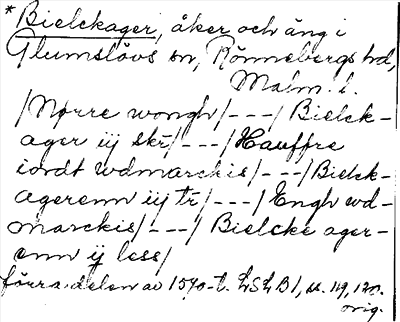 * Bielckager, åker och äng i
Glumslövs sn, Rönnebergs hd,
Malm. l.
/Nørre wongh/---/ Bielck-
ager iij skr/---/Hauffre
iordt wdmarckis/---/Bielck-
agerenn iij tr/---/Engh wd-
marckis/---/ Bielcke ager-
enn ij less/
förra delen av 1570-t. LSLB1, s. 119, 120.
orig.